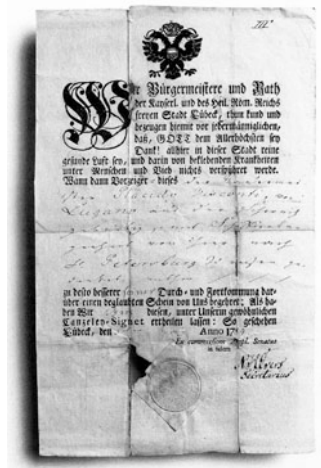 Wir Bürgermeistere und Rath
der Kayserl. und des Heil. Röm. Reichs
freyen Stadt Lübeck, thun kund und
bezeugen hiemit vor jedermänniglichen,
daß, GOTT dem Allerhöchsten sey
Dank! allhier in dieser Stadt reine
gesunde Luft sey, und darin von beklebenden Krankheiten
unter Menschen und Vieh nichts verspühret werde.
Wann dann Vorzeiger dieses
Lugano
St Petersburg
zu desto besserer Durch- und Fortkommung dar-
über einen beglaubten Schein von Uns begehret; Als ha-
ben Wir diesen, unter Unserm gewöhnlichen
Canzeley-Signet ertheilen lassen: So geschehen
Lübeck, den Anno 178
Ex commissione Ampl. Senatus
Secretarius